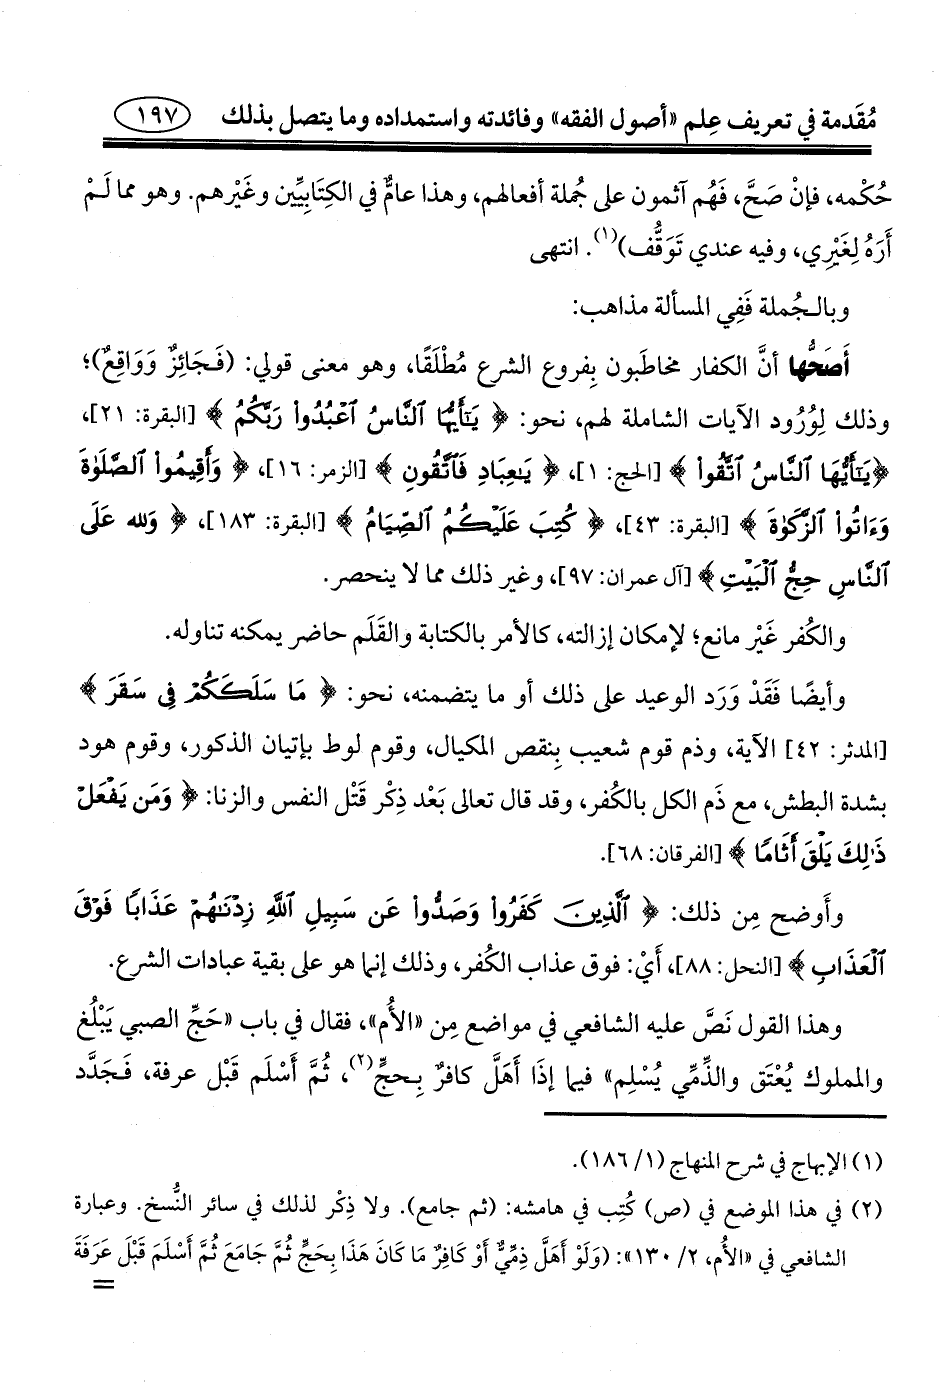 مُقَدمة في تعريف عِلم «أصول الفقه» وفائدته واستمداده وما يتصل بذلك ١٩٧
حُكْمه، فإنْ صَحَّ، فَهُم آثمون على جُملة أفعالهم، وهذا عامٌّ في الكِتَابيِّين وغَيْرهم. وهو مما لَمْ
أَرَهُ لِغَيْرِي، وفيه عندي تَوَقُّف)(١). انتهى
وبالجُملة فَفِي المسألة مذاهب:
أَصَحُّها أنَّ الكفار مخاطَبون بِفروع الشرع مُطْلَقًا، وهو معنى قولي: (فَجَائِزٌ وَوَاقِعٌ)؛
وذلك لِوُرُود الآيات الشاملة لهم، نحو: ﴿ يَٰٓأَيُّهَا ٱلنَّاسُ ٱعْبُدُوا۟ رَبَّكُمُ ﴾ [البقرة: ٢١]،
﴿يَٰٓأَيُّهَا ٱلنَّاسُ ٱتَّقُوا۟ ﴾ [الحج: ١]، ﴿ يَٰعِبَادِ فَٱتَّقُونِ ﴾ [الزمر: ١٦]، ﴿ وَأَقِيمُوا۟ ٱلصَّلَوٰةَ
وَءَاتُوا۟ ٱلزَّكَوٰةَ ﴾ [البقرة: ٤٣]، ﴿ كُتِبَ عَلَيْكُمُ ٱلصِّيَامُ ﴾ [البقرة: ١٨٣]، ﴿ وَلله عَلَى
ٱلنَّاسِ حِجُّ ٱلْبَيْتِ ﴾ [آل عمران: ٩٧]، وغير ذلك مما لا ينحصر.
والكُفر غَيْر مانع؛ لإمكان إزالته، كالأمر بالكتابة والقَلَم حاضر يمكنه تناوله.
وأيضًا فَقَدْ وَرَد الوعيد على ذلك أو ما يتضمنه، نحو: ﴿ مَا سَلَكَكُمْ فِى سَقَرَ ﴾
[المدثر: ٤٢] الآية، وذم قوم شعيب بِنقص المكيال، وقوم لوط بإتيان الذكور، وقوم هود
بشدة البطش، مع ذَم الكل بالكُفر، وقد قال تعالى بَعْد ذِكْر قَتْل النفس والزنا: ﴿ وَمَن يَفْعَلْ
ذَٰلِكَ يَلْقَ أَثَامًا ﴾ [الفرقان: ٦٨].
وأَوضح مِن ذلك: ﴿ ٱلَّذِينَ كَفَرُوا۟ وَصَدُّوا۟ عَن سَبِيلِ ٱللَّهِ زِدْنَٰهُمْ عَذَابًا فَوْقَ
ٱلْعَذَابِ ﴾ [النحل: ٨٨]، أَيْ: فوق عذاب الكُفر، وذلك إنما هو على بقية عبادات الشرع.
وهذا القول نَصَّ عليه الشافعي في مواضع مِن «الأُم»، فقال في باب «حَجِّ الصبي يَبْلُغ
والمملوك يُعْتَق والذِّمِّي يُسْلِم» فيما إذَا أَهَلَّ كافرٌ بِحجٍّ(٢)، ثُمَّ أَسْلَم قَبْل عرفة، فَجَدَّد
(١) الإبهاج في شرح المنهاج (١/ ١٨٦).
(٢) في هذا الموضع في (ص) كُتِب في هامشه: (ثم جامع). ولا ذِكْر لذلك في سائر النُّسخ. وعبارة
الشافعي في «الأُم، ٢/ ١٣٠»: (وَلَوْ أَهَلَّ ذِمِّيٌّ أَوْ كَافِرٌ مَا كَانَ هَذَا بِحَجٍّ ثُمَّ جَامَعَ ثُمَّ أَسْلَمَ قَبْلَ عَرَفَةَ
=